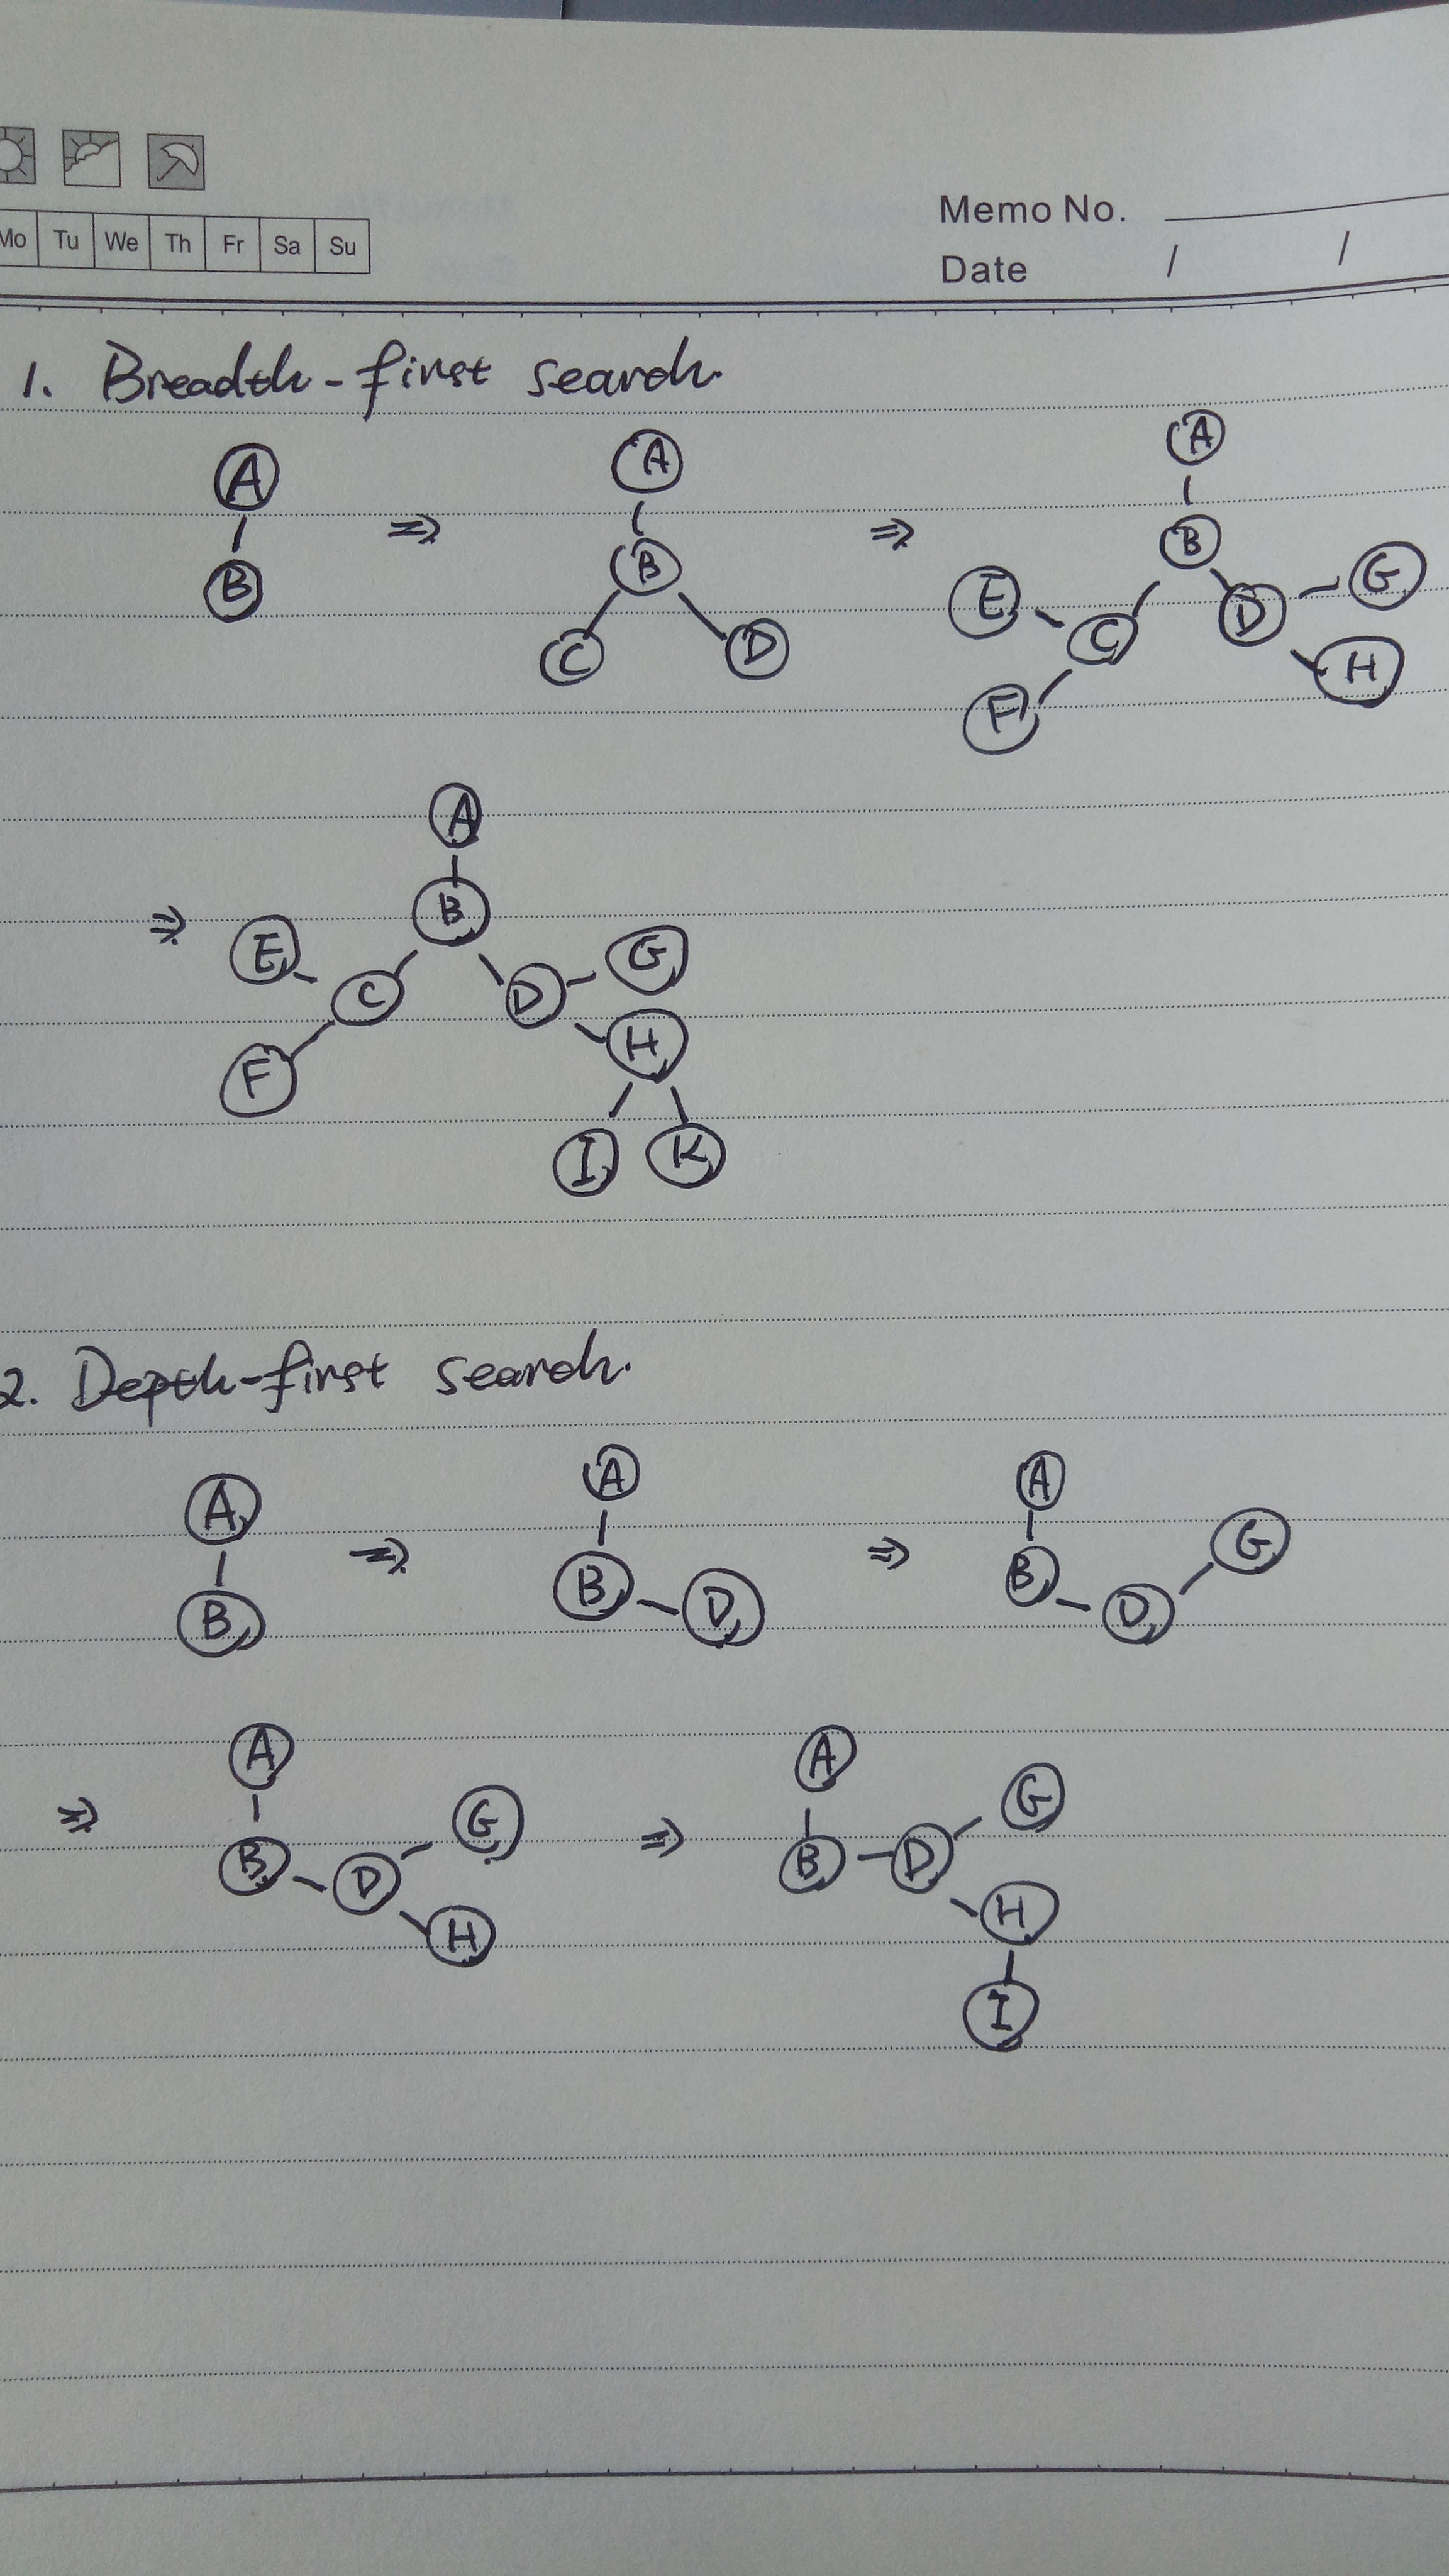 Mo Tu We Th Fr Sa Su
Memo No.
Date / /
1. Breadth-first search.
A A A
B ⇒ B ⇒ B
C D E C D G
F H
A
⇒ B
E C D G
F H
I K
2. Depth-first search.
A A A
B ⇒ B D ⇒ B D G
A A
⇒ B D G ⇒ B D G
H H
I